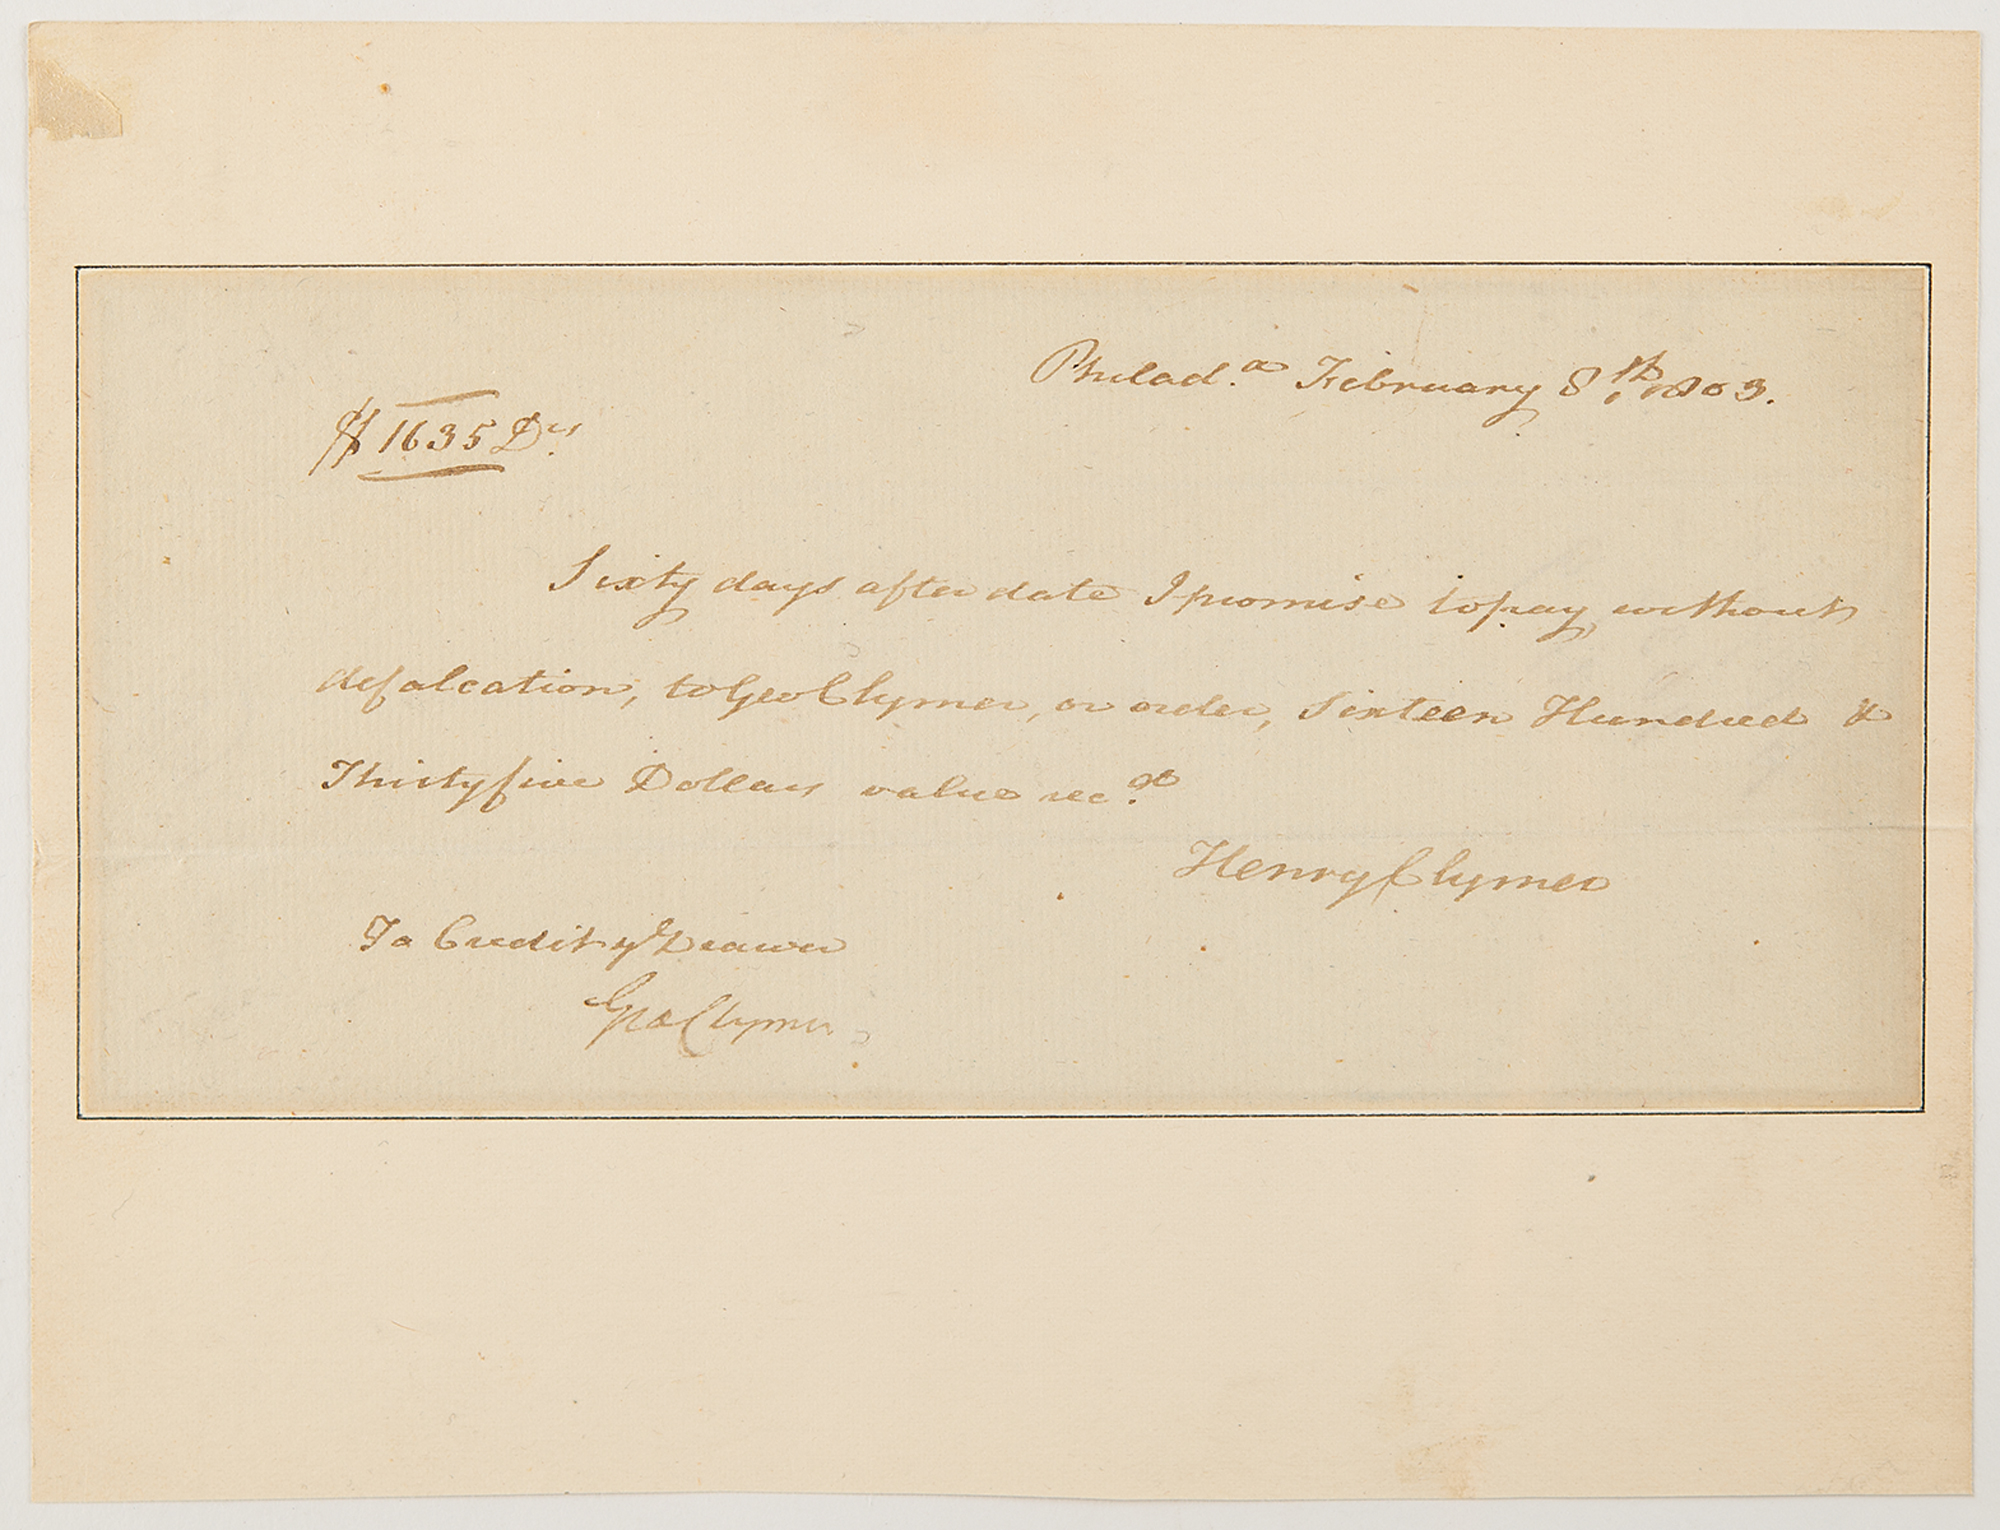 Philad.a February 8th, 1803.
$ 1635 Drs
Sixty days after date I promise to pay without
defalcation, to Geo Clymer, or order, Sixteen Hundred &
Thirty five Dollars value rec.d
Henry Clymer
To Credit ye Drawer
Geo Clymer